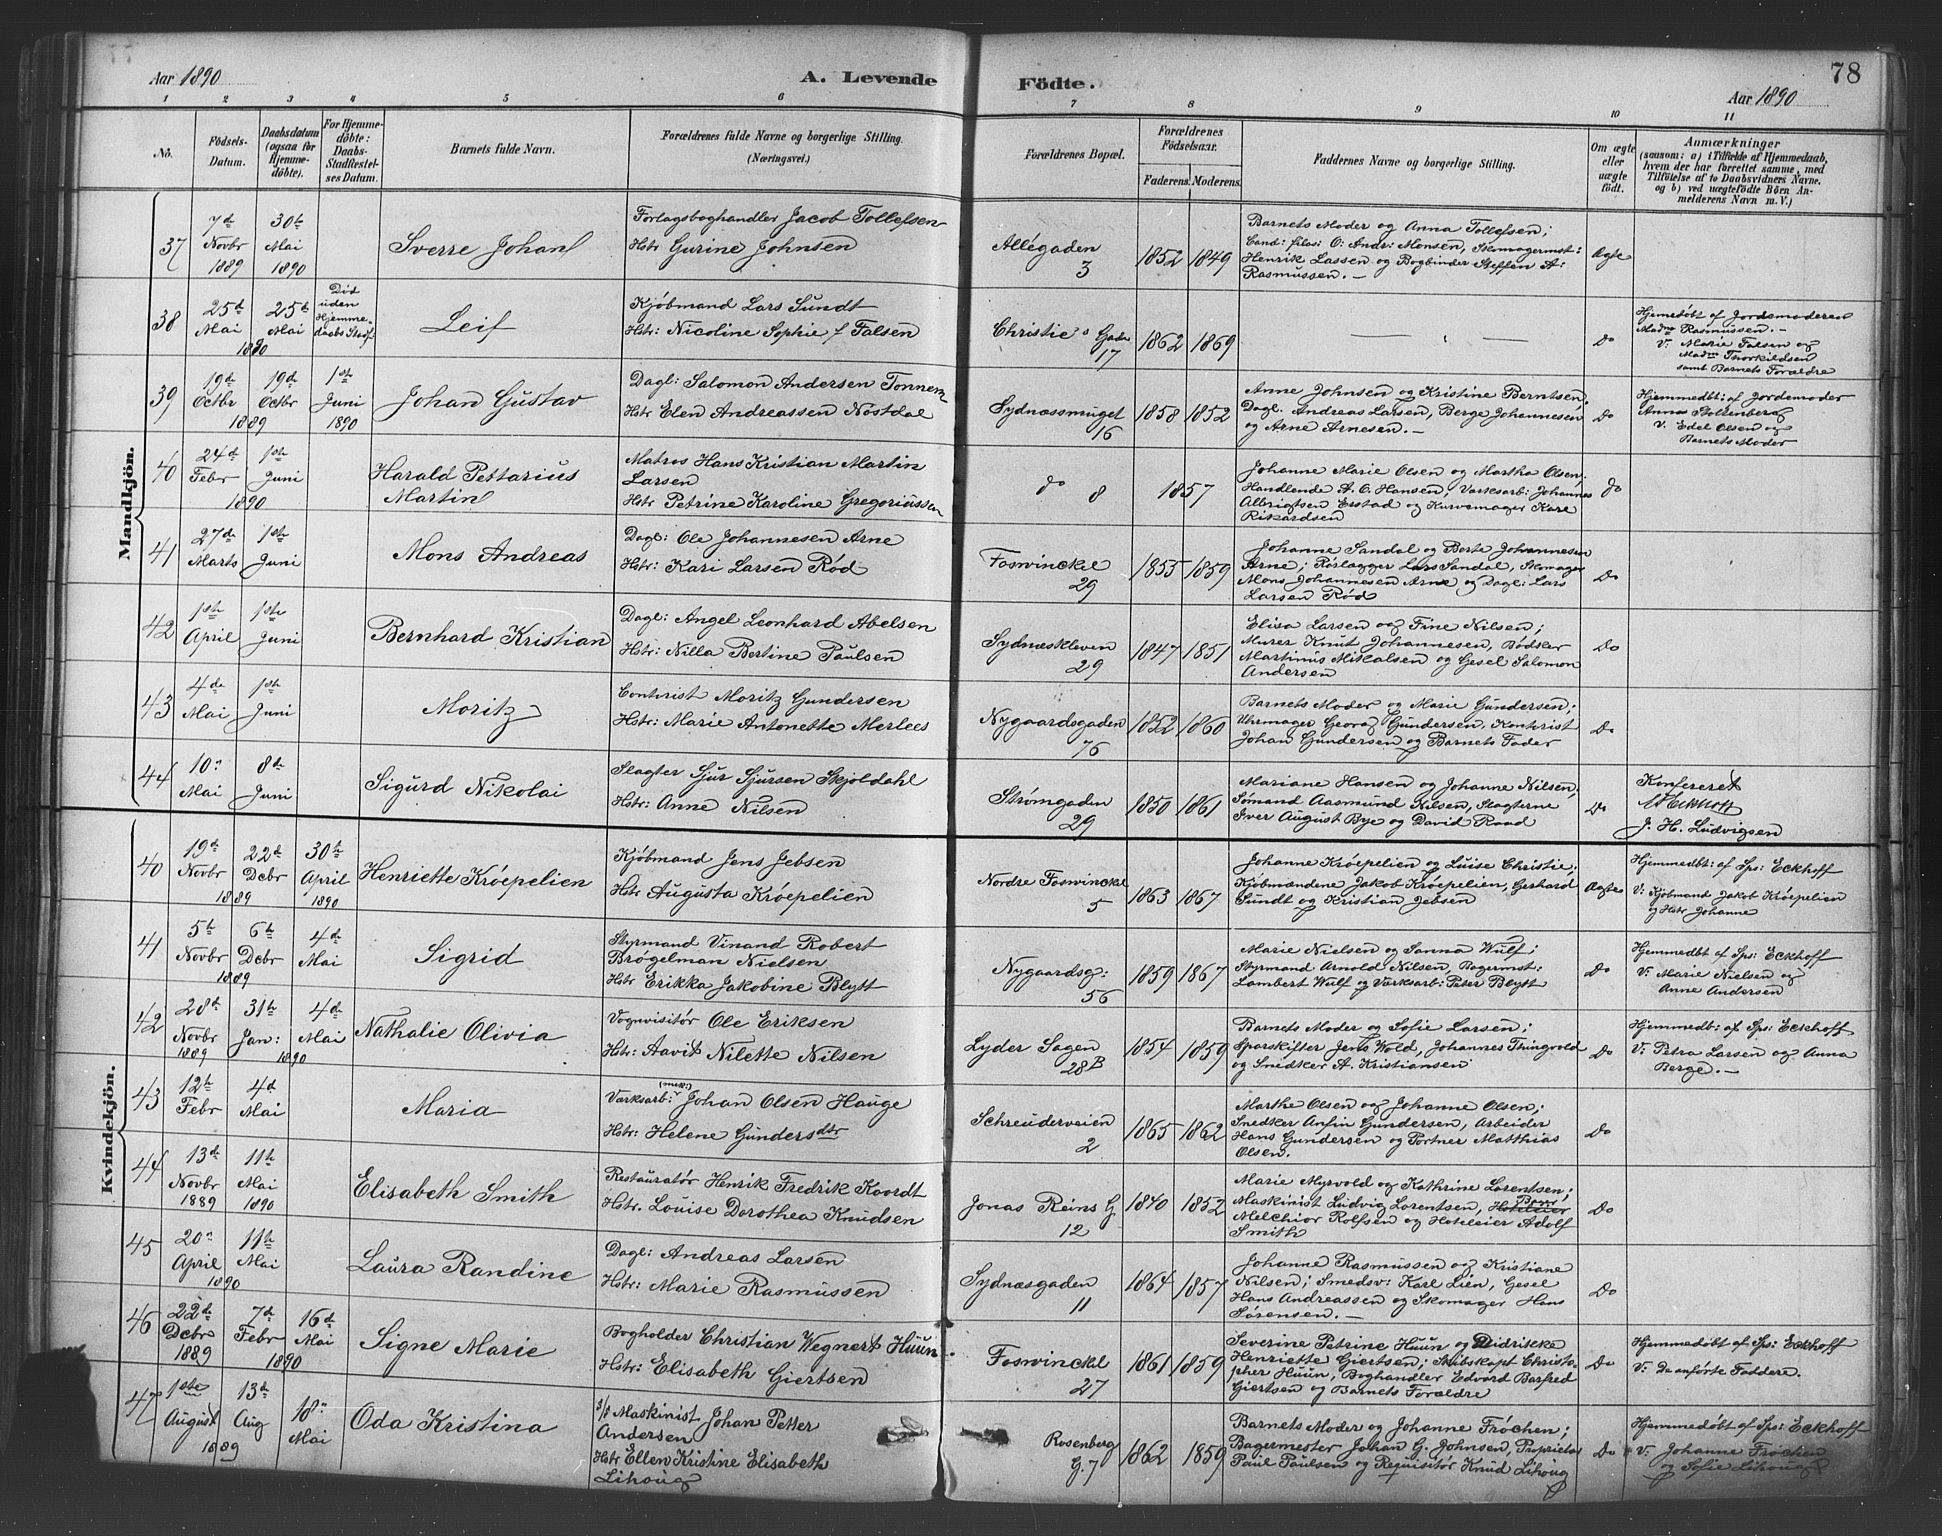 Aar 1890
A. Levende
Födte.
78
Aar 1890
1 2 3 4 5 6 7 8 9 10 11
No.
Födsels-
Datum.
Daabsdatum
(ogsaa for
Hjemme-
döbte).
For Hjemme-
döbte:
Daabs-
Stadfæstel-
ses Datum.
Barnets fulde Navn.
Forældrenes fulde Navne og borgerlige Stilling.
(Næringsvei.)
Forældrenes Bopæl.
Forældrenes
Födselsaar.
Faderens. Moderens.
Faddernes Navne og borgerlige Stilling.
Om ægte
eller
uægte
födt.
Anmærkninger
(saasom: a) i Tilfælde af Hjemmedaab,
hvem der har forrettet samme, med
Tilföielse af to Daabsvidners Navne,
og b) ved uægtefödte Börn An-
melderens Navn m. V.)
Mandkjön.
37
7de
Novbr
1889
30te
Mai
1890
Sverre Johan
Forlagsboghandler Jacob Tollefsen
Hstr Gurine Johnsen
Allégaden
3
1852 1849
Barnets Moder og Anna Tollefsen;
Cand: filos: O: Andr: Monsen, Skomagermst:
Henrik Lassen og Bogbinder Steffen A:
Rasmussen. —
Ægte
38
25de
Mai
25de
Mai
1890
Död
uden
Hjemme-
daabs Stadf.
Leif
Kjøbmand Lars Sundt
Hstr: Nicoline Sophie f Falsen
Christie's Gade
17
1862 1869
Do
Hjemmedøbt af Jordemoderen
Madm Rasmussen. —
V: Marie Falsen og
Madm Thorkildsen
samt Barnets Forældre
39
19de
Octbr
19de
Octbr
1889
1ste
Juni
1890
Johan Gustav
Dagl: Salomon Andersen Tonnem
Hstr Elen Andreassen Nöstdal
Sydnæssmuget
16
1858 1852
Anne Johnsen og Kristine Berntsen,
Dagl. Andreas Larsen, Berge Johannesen
og Arne Arnesen. —
Do
Hjemmedbt: af Jordemoder
Anna Stoltenberg
V. Edel Olsen og
Barnets Moder
40
24de
Febr
1ste
Juni
1890
Harald Pettarius
Martin
Matros Hans Kristian Martin
Larsen
Hstr Petrine Karoline Gregoriussen
do 8
1857
Johanne Marie Olsen og Martha Olsen,
Handlende A. O. Hansen, Værksarb: Johannes
Albrigtsen Erstad og Kurvemager Kare
Rikardsen
Do
41
27de
Marts
1ste
Juni
Mons Andreas
Dagl: Ole Johannesen Arne
Hstr: Kari Larsen Röd
Fosvinckel
29
1855 1859
Johanne Sandal og Berte Johannesen
Arne; Rörlægger Lars Sandal, Skomager
Mons Johannesen Arne og Dagl: Lars
Larsen Röd
Do
42
1ste
April
1ste
Juni
Bernhard Kristian
Dagl: Angel Leonhard Abelsen
Hstr: Nilla Bertine Paulsen
Sydnæskleven
29
1847 1851
Elisa Larsen og Fine Nilsen;
Murer Knut Johannesen, Bødker
Martinus Mikalsen og Gesel Salomon
Andersen
Do
43
4de
Mai
1ste
Juni
Moritz
Contorist Moritz Gundersen
Hstr: Marie Antonette Merlees
Nygaardsgaden
76
1852 1860
Barnets Moder og Marie Gundersen;
Uhrmager Georg Gundersen, Kontorist
Johan Gundersen og Barnets Fader
Do
44
10"
Mai
8de
Juni
Sigurd Nikolai
Slagter Sjur Sjursen Skjoldahl
Hstr: Anne Nilsen
Strømgaden
29
1850 1861
Mariane Hansen og Johanne Nilsen,
Sømand Aasmund Nilsen, Slagterne
Iver August Bye og David Raad
Do
Konfereret
Eckhoff
J. H. Ludvigsen
Kvindekjön.
40
19de
Novbr
22de
Dcbr
1889
30te
April
1890
Henriette Kröepelien
Kjøbmand Jens Jebsen
Hstr: Augusta Kröepelien
Nordre Fosvinckel
5
1863 1867
Johanne Kröepelien og Luise Christie;
Kjøbmændene Jakob Kröepelien, Gerhard
Sundt og Kristian Jebsen
Ægte
Hjemmedbt: af Sps: Eckhoff
V: Kjøbmand Jakob Kröepelien
og Hstr Johanne
41
5te
Novbr
6te
Dcbr
1889
4de
Mai
Sigrid
Styrmand Vinand Robert
Brøgelman Nielsen
Hstr Erikka Jakobine Blytt
Nygaardsg:
56
1859 1867
Marie Nielsen og Sanna Wulf;
Styrmand Arnold Nilsen, Bagermst:
Lambert Wulf og Værksarb: Peter Blytt
Do
Hjemmedbt af Sps: Eckhoff
V: Marie Nielsen og
Anne Andersen
42
28de
Novbr
1889
31te
Jan:
1890
4de
Mai
Nathalie Olivia
Vognvisitør Ole Eriksen
Hstr: Aavit Nilette Nilsen
Lyder Sagen
28B
1854 1859
Barnets Moder og Sofie Larsen;
Sporskifter Jens Wold, Johannes Thingvold
og Snedker A. Kristiansen
Do
Hjemmedb: af Sps: Eckhoff
V: Petra Larsen og Anna
Berge. —
43
12te
Febr
4de
Mai
Maria
Værksarb: Johan Olsen Hauge
Hstr: Helene Gundersdtr
Schreuderveien
2
1865 1862
Marthe Olsen og Johanne Olsen;
Snedker Anfin Gundersen, Arbeider
Hans Gundersen og Portner Matthias
Olsen.
Do
44
13de
Novbr
1889
11te
Mai
1890
Elisabeth Smith
Restauratør Henrik Fredrik Koordt
Hstr. Louise Dorothea Knudsen
Jonas Reins G
12
1840 1852
Marie Myrvold og Kathrine Lorentsen;
Maskinist Ludvig Lorentsen, Hoteleier
Melchior Rolfsen og Hoteleier Adolf
Smith
Do
45
20"
April
1890
11te
Mai
Laura Randine
Dagl: Andreas Larsen
Hstr: Marie Rasmussen
Sydnæsgaden
11
1864 1857
Johanne Rasmussen og Kristiane
Nilsen; Smedsv: Karl Lien, Gesel
Hans Andreassen og Skomager Hans
Sørensen. —
Do
46
22de
Dcbr
1889
7de
Febr
1890
16de
Mai
Signe Marie
Bogholder Christian Wegnert Huun.
Hstr: Elisabeth Giertsen
Fosvinckel
27
1861 1859
Severine Petrine Huun og Didrikke
Henriette Giertsen; Skibskapt Christo-
pher Huun, Boghandler Edvard Barfred
Giertsen og Barnets Forældre
Do
Hjemmedøbt af Sps: Eckhoff
V: De anførte Faddere.
47
1ste
August
13de
Aug
1889
18"
Mai
Oda Kristina
S/s Maskinist Johan Petter
Andersen
Hstr Ellen Kristine Elisabeth
Lihoug
Rosenberg
G. 7
1862 1859
Barnets Moder og Johanne Frøchen;
Bagermester Johan G. Johnsen, Proprietær
Paul Paulsen og Requisitör Knud Lihoug
Do
Hjemmedøbt af Sps: Eckhoff
V: Johanne Frøchen
og Sofie Lihoug